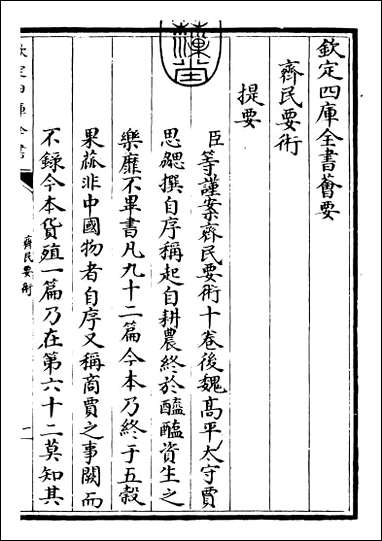 欽定四庫全書薈要
齊民要術
提要
臣等謹案齊民要術十卷後魏高平太守賈
思勰撰自序稱起自耕農終於醯醢資生之
樂靡不畢書凡九十二篇今本乃終于五穀
果蓏非中國物者自序又稱商賈之事闕而
不錄今本貨殖一篇乃在第六十二莫知其
欽定四庫全書
齊民要術
一